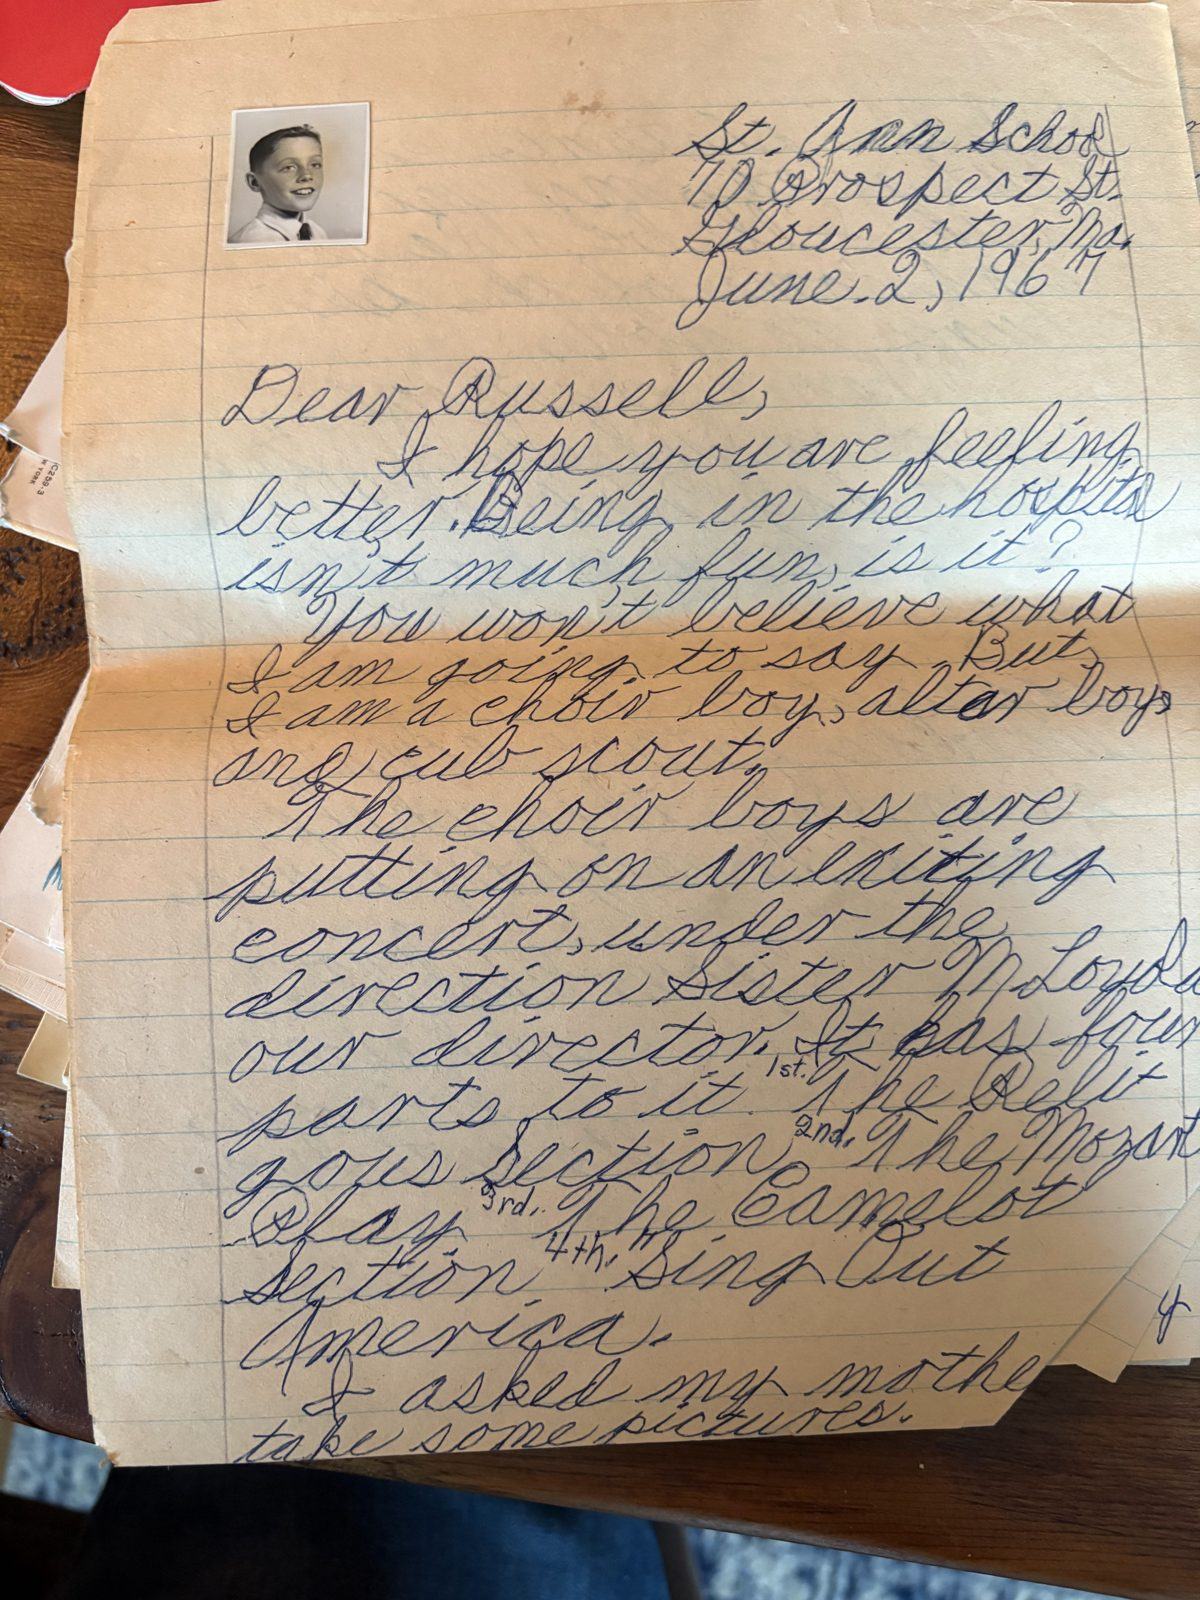 St. Ann School
70 Prospect St.
Gloucester, Ma.
June. 2, 1967
Dear Russell,
I hope you are feeling
better. Being in the hospital
isn't much fun, is it?
You won't believe what
I am going to say. But,
I am a choir boy, altar boy,
and cub scout.
The choir boys are
putting on an exiting
concert, under the
direction Sister M Loyola
our director. It has four
parts to it. 1st. The Reli
gous Section 2nd. The Mozart
Play 3rd. The Camelot
Section 4th. Sing Out
America.
I asked my mothe
take some pictures.